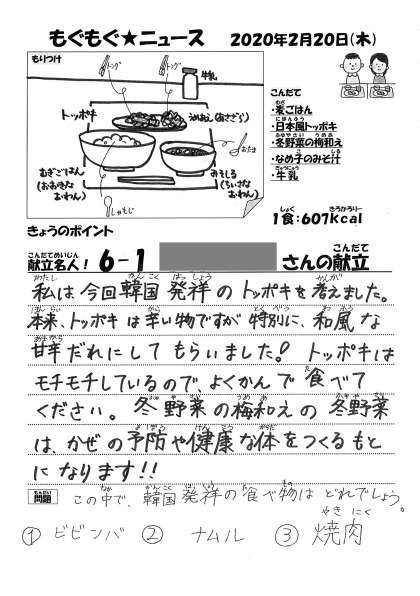 もぐもぐ★ニュース 2020年2月20日(木)
もりつけ
トング トング
牛乳
トッポギ うめあえ(あさざら)
おたま
むぎごはん(おおきなおわん)
みそしる(ちいさなおわん)
しゃもじ
こんだて
・麦ごはん
・日本風トッポキ
・冬野菜の梅和え
・なめ子のみそ汁
・牛乳
1食:607kcal
きょうのポイント
献立名人! 6-1 さんの献立
私は今回韓国発祥のトッポキを考えました。
本来、トッポキは辛い物ですが特別に、和風な
甘辛だれにしてもらいました!トッポキは
モチモチしているので、よくかんで食べて
ください。冬野菜の梅和えの冬野菜
は、かぜの予防や健康な体をつくるもと
になります!!
問題 この中で、韓国発祥の食べ物はどれでしょう。
① ビビンバ ② ナムル ③ 焼肉